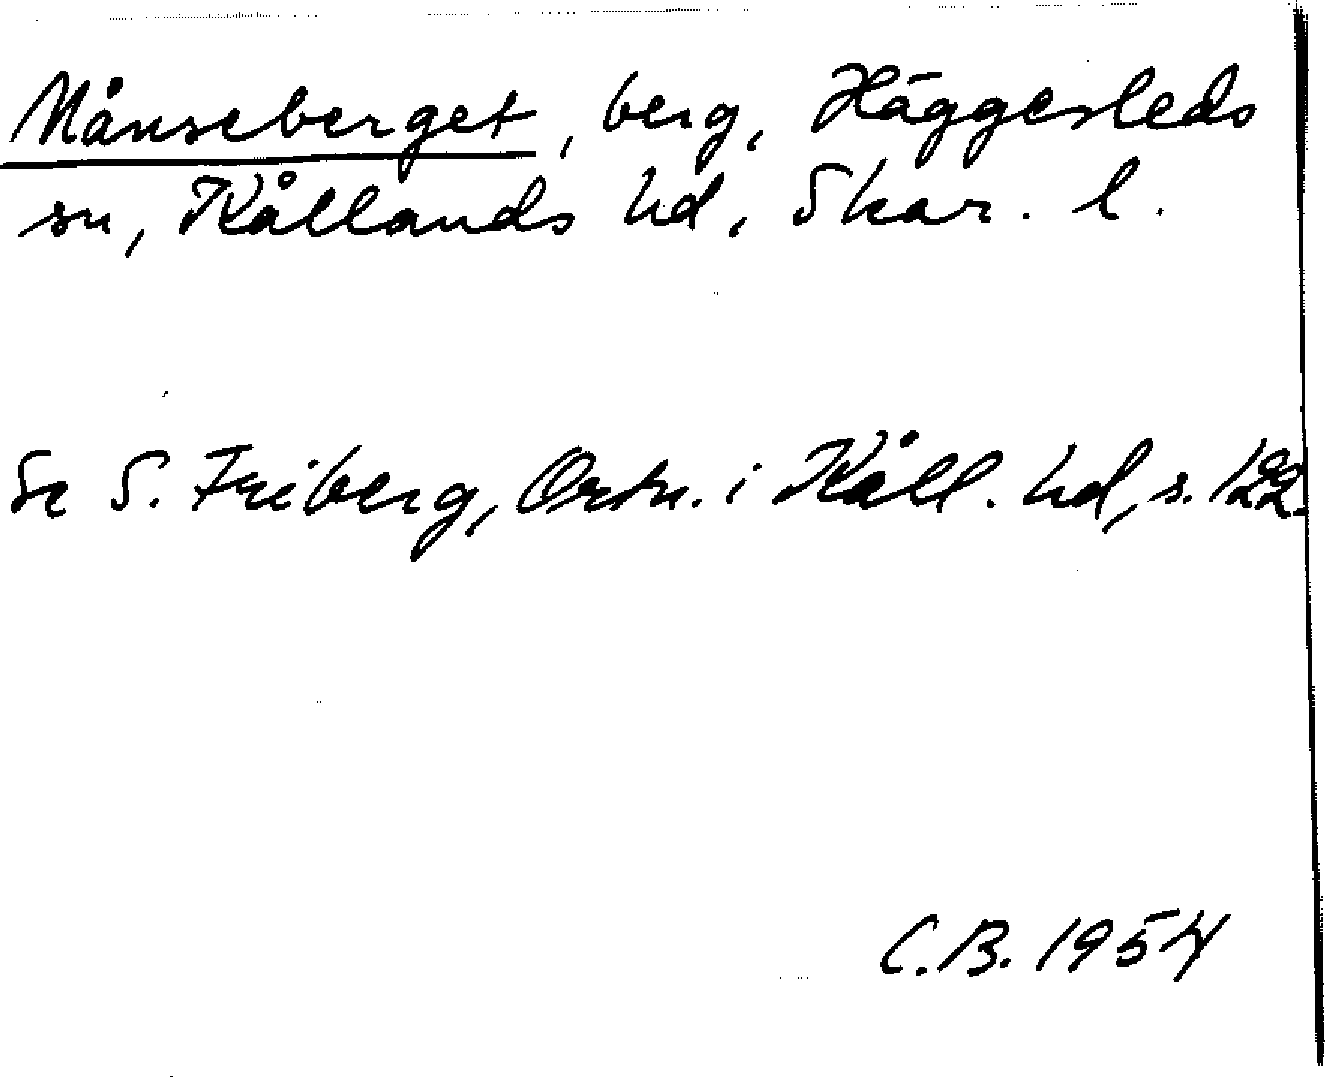 Månseberget, berg, Häggesleds
sn, Kållands hd, Skar. l.
Se S. Friberg, Ortn. i Kåll. hd, s. 122.
C.B. 1954